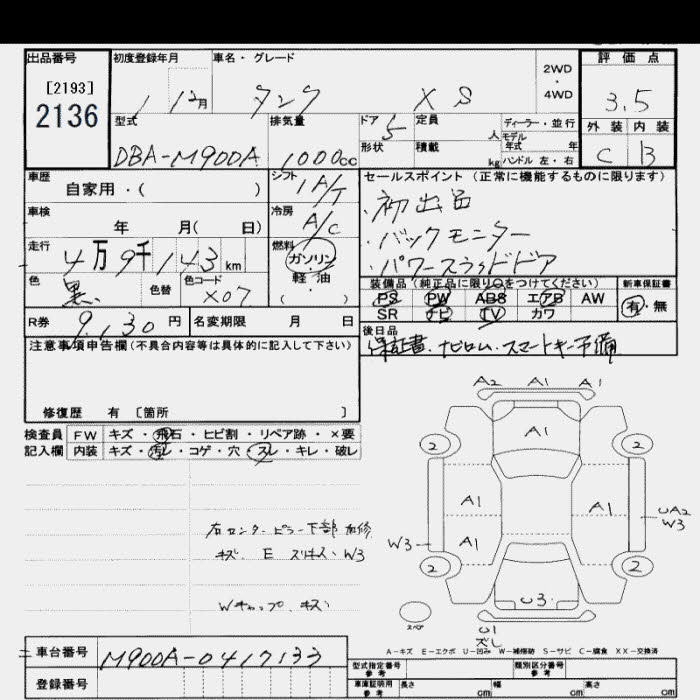 出品番号
[2193]
2136
初度登録年月
1 12月
車名・グレード
タンク XS
2WD
・
4WD
評価点
3.5
外装 内装
C B
型式
DBA-M900A
排気量
1000cc
ドア
5
定員
人
形状
積載
kg
ディーラー・並行
モデル
年式 年
ハンドル 左・右
車歴
自家用・( )
シフト
IA/T
車検
年 月( 日)
冷房
A/C
走行
4万9千143km
燃料
ガソリン
・
軽 油
( )
色
黒
色替
色コード
X07
R券
9,130円
名変期限 月 日
セールスポイント(正常に機能するものに限ります)
・初出品
・バックモニター
・パワースライドドア
装備品(純正品に限り〇をつけてください)
PS PW ABS エアB AW
SR ナビ TV カワ
新車保証書
有・無
後日品
保証書、ナビロム、スマートキー予備
注意事項申告欄(不具合内容等は具体的に記入して下さい)
修復歴 有 [箇所 ]
検査員
記入欄
FW キズ・飛石・ヒビ割・リペア跡・×要
内装 キズ・汚レ・コゲ・穴・スレ・キレ・破レ
右センターピラー下部 加修
キズ E スリキズ、W3
Wキャップ、キズ
A2 A1 A1
A1
2 2
A1 A1
UA2
W3
W3
A1
2 2
U3
スペア
U1
ズレ
A-キズ E-エクボ U-凹み W-補修跡 S-サビ C-腐食 XX-交換済
車台番号
M900A-0417133
登録番号
型式指定番号
参考
類別区分番号
参考
車庫証明用
参考
長さ cm 幅 cm 高さ cm